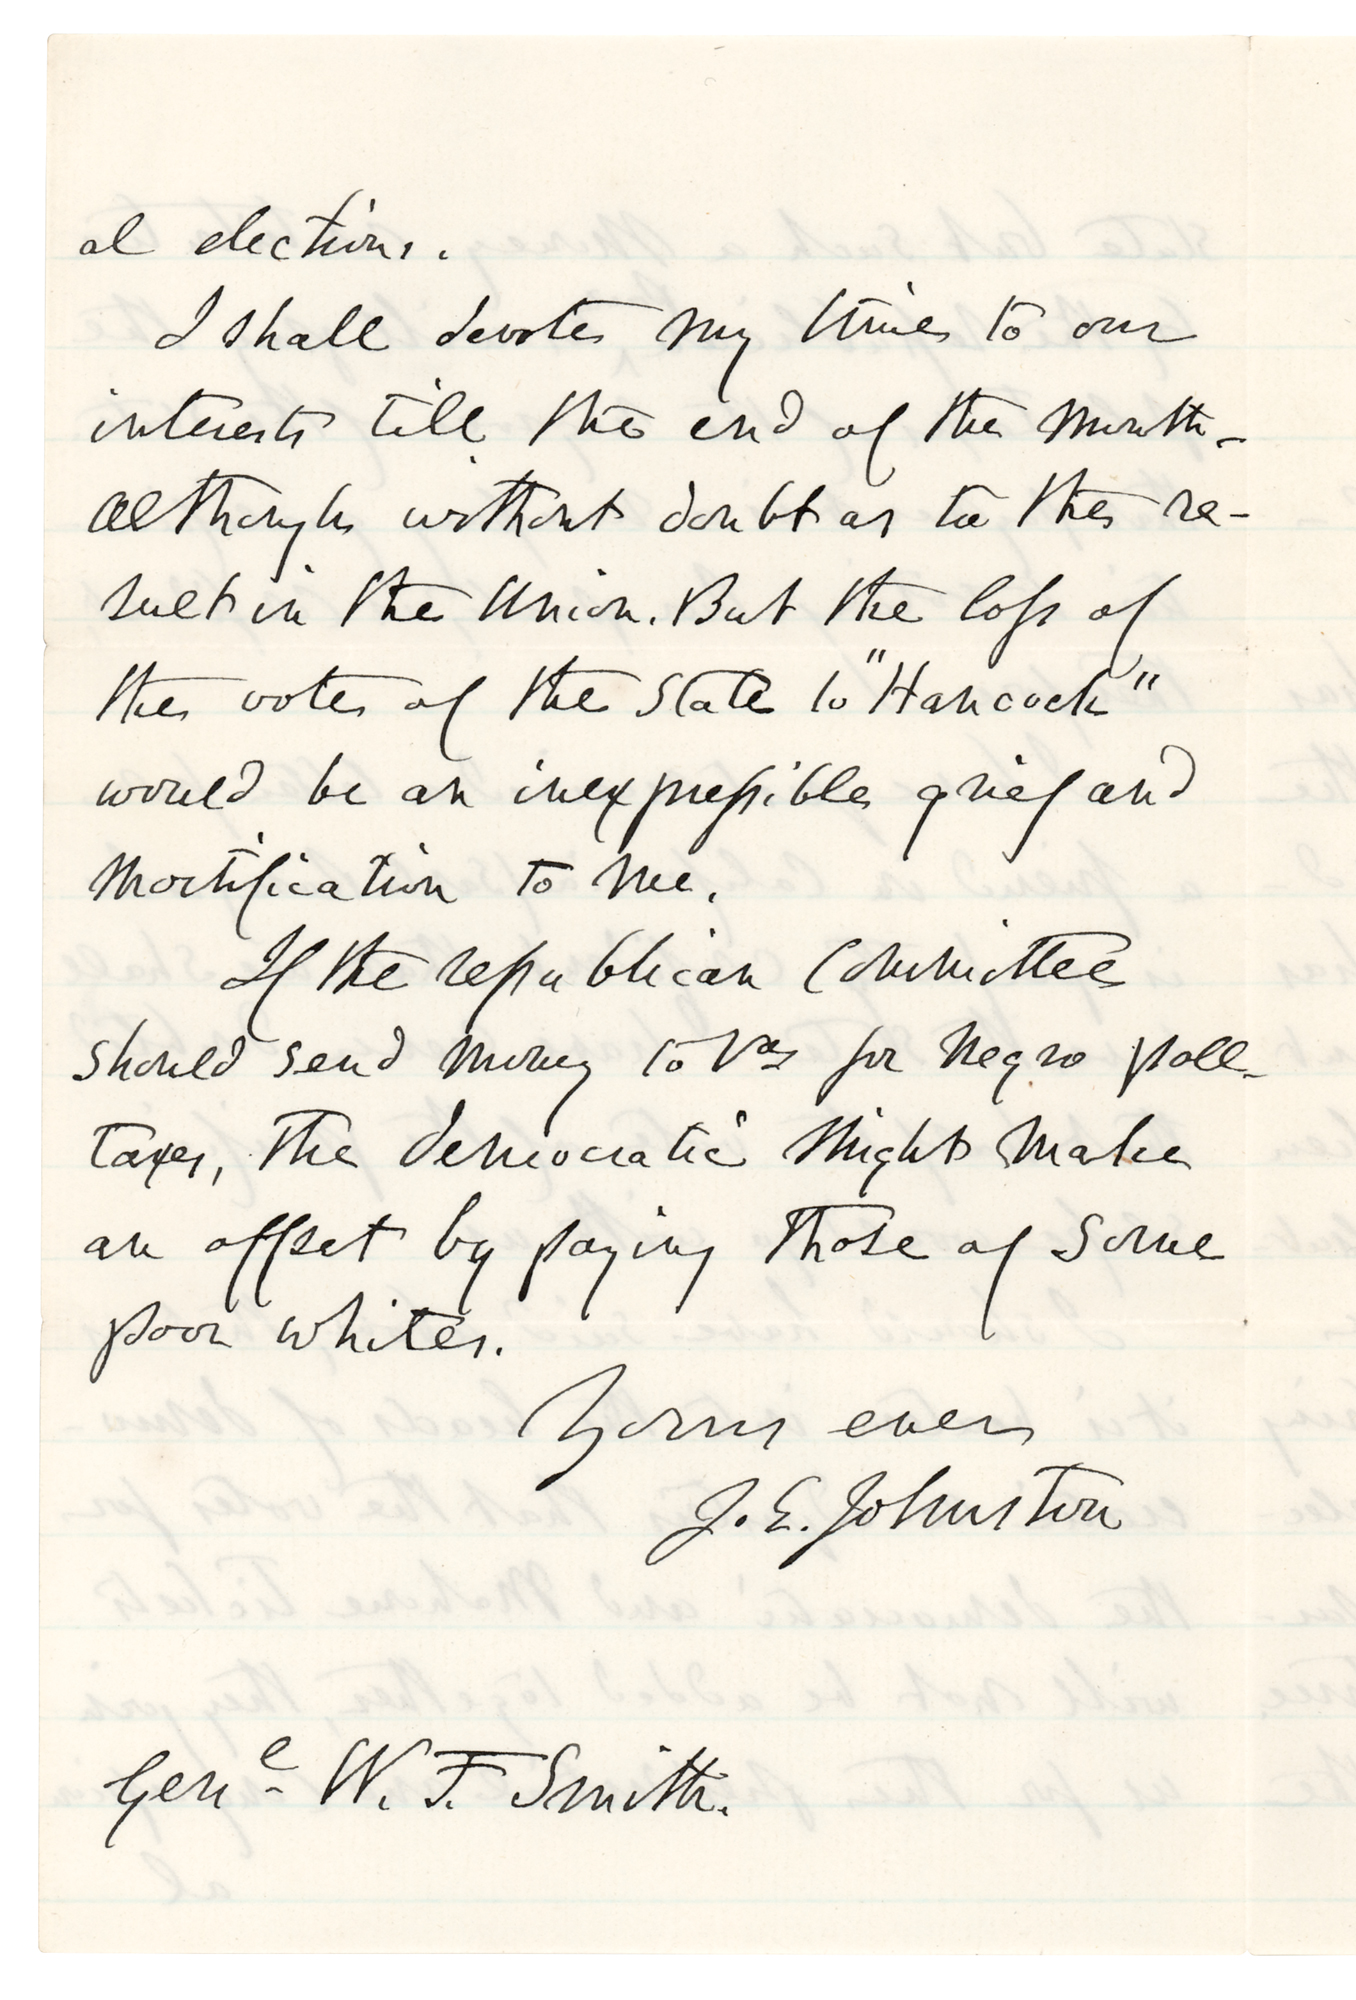 al elections.
I shall devote my time to our
interests till the end of the month-
although without doubt as to the re-
sult in the Union. But the loss of
the vote of the State to "Hancock"
would be an inexpressible grief and
mortification to me.
If the republican Committee
should send money to Va for negro poll-
taxes, the democratic might make
an offset by paying those of some
poor whites.
Yours ever
J. E. Johnston
Genl. W. F. Smith.